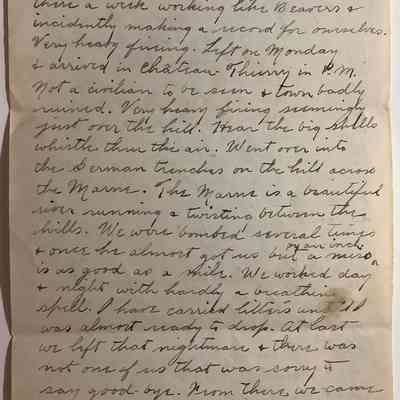 there a week working like Beavers &
incidently making a record for ourselves.
Very heavy firing. Left on Monday
& arrived in Chateau-Thierry in P.M.
Not a civilian to be seen & town badly
ruined. Very heavy firing seemingly
just over the hill. Hear the big shells
whistle thru the air. Went over into
the German trenches on the hill across
the Marne. The Marne is a beautiful
river running & twisting between the
hills. We were bombed several times
& once he almost got us but a miss
by an inch
is as good as a mile. We worked day
& night with hardly a breathing
spell. I have carried litters until I
was almost ready to drop. At last
we left that nightmare & there was
not one of us that was sorry to
say good-bye. From there we came